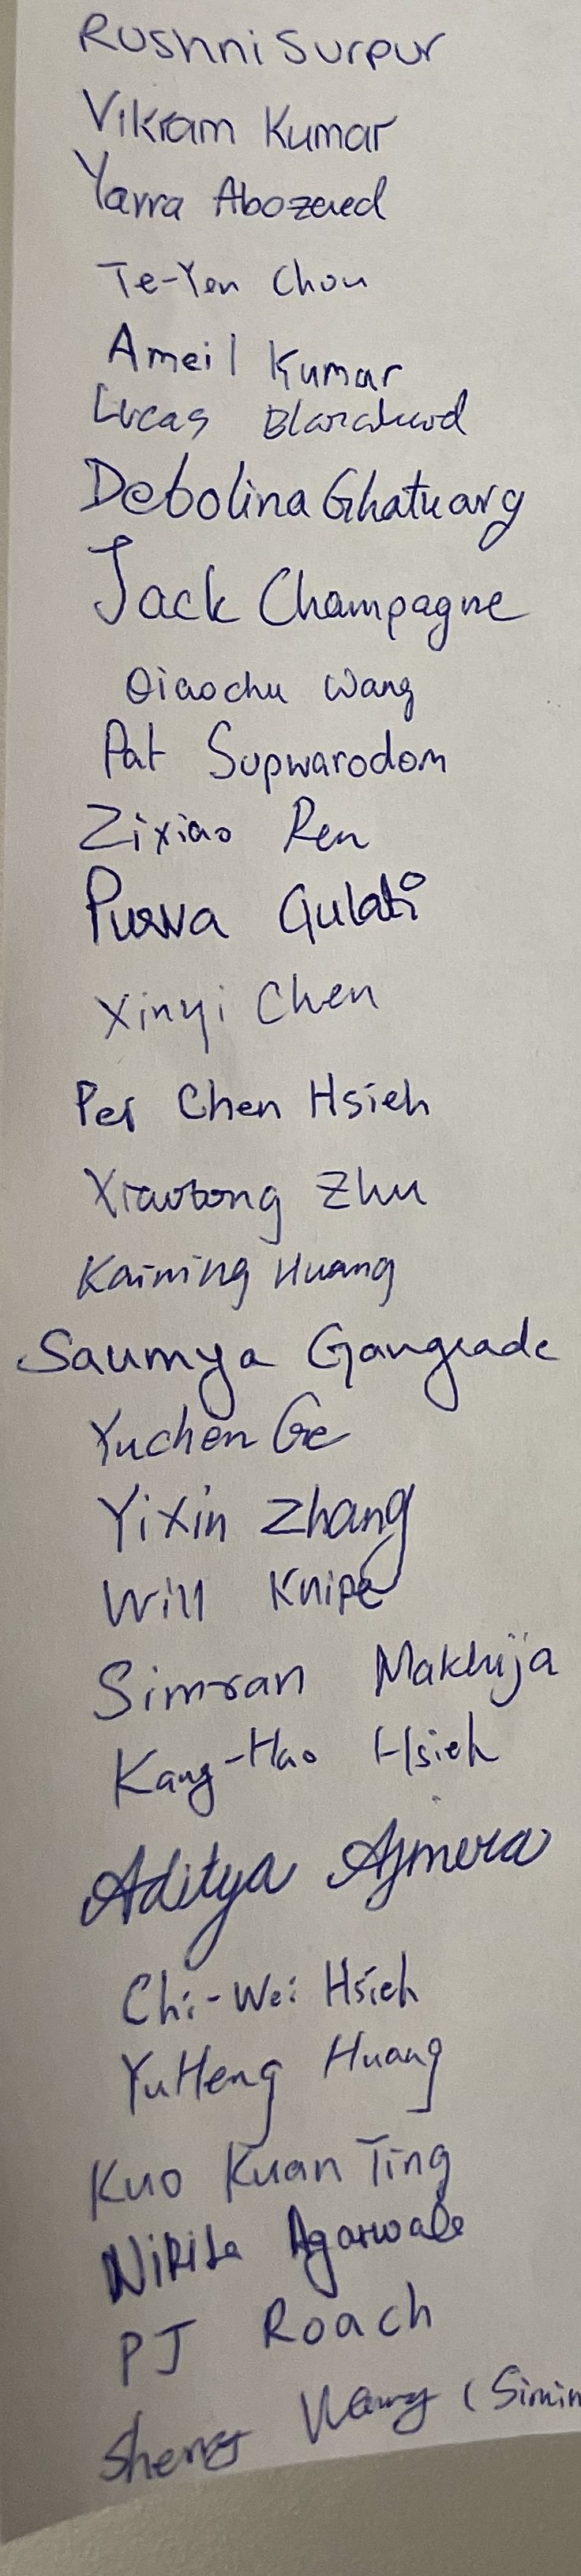 Roshni Surpur
Vikram Kumar
Yarra Abozaed
Te-Yen Chou
Ameil Kumar
Lucas
Debolina Ghatuary
Jack Champagne
Qiaochu Wang
Pat Supwarodom
Zixiao Ren
Purva Gulati
Xinyi Chen
Pei Chen Hsieh
Xiaotong Zhu
Kaiming Huang
Saumya Gangrade
Yuchen Ge
Yixin Zhang
Will Knipe
Simran Makhija
Kang-Hao Hsieh
Aditya Ajmera
Chi-Wei Hsieh
YuHeng Huang
Kuo Kuan Ting
Nikita Agarwale
PJ Roach
Sheng Wang (Simin